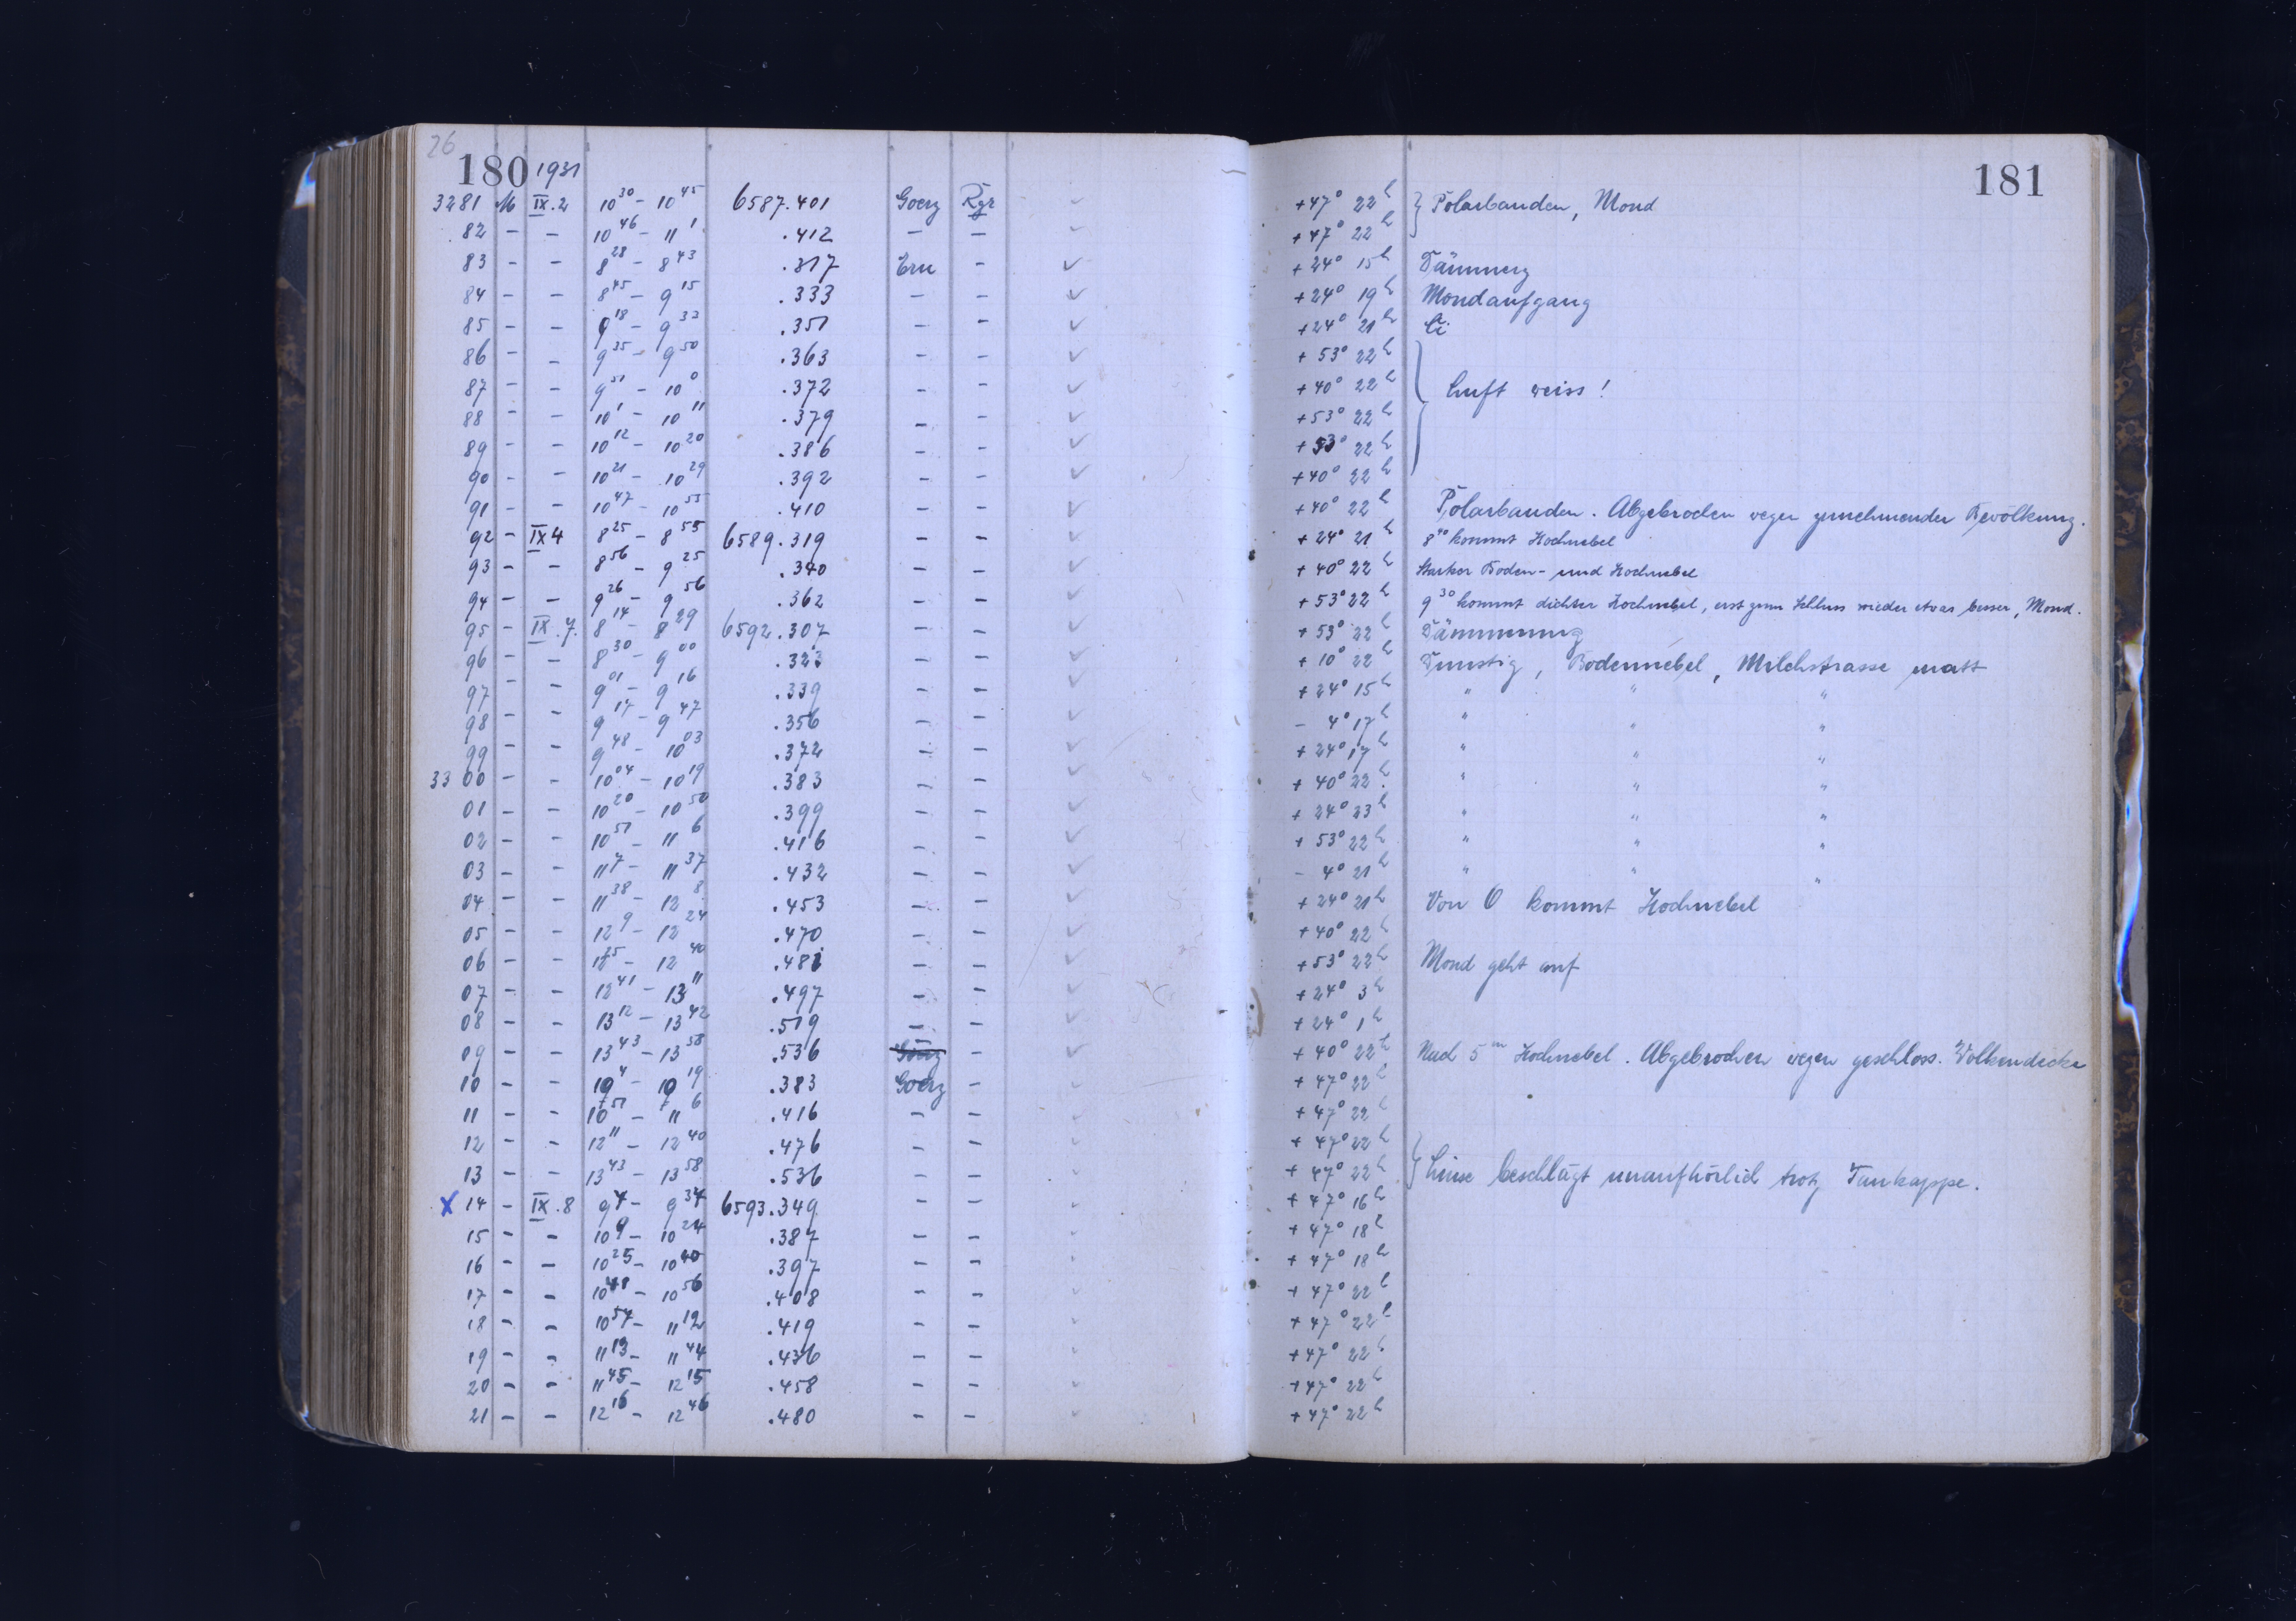 26
180 1931
181
3281 M IX.2 10³⁰ – 10⁴⁵ 6587.401 Goerz Rgr ✓ +47° 22ʰ } Polarbanden, Mond
82 – – 10⁴⁶ – 11¹ .412 – – ✓ +47° 22ʰ
83 – – 8²⁸ – 8⁴³ .317 Ern – ✓ +24° 15ʰ Dämmerg
84 – – 8⁴⁵ – 9¹⁵ .333 – – ✓ +24° 19ʰ Mondaufgang
85 – – 9¹⁸ – 9³³ .351 – – ✓ +24° 21ʰ Ci
86 – – 9³⁵ – 9⁵⁰ .363 – – ✓ +53° 22ʰ
87 – – 9⁵¹ – 10⁰ .372 – – ✓ +40° 22ʰ } Luft weiss!
88 – – 10¹ – 10¹¹ .379 – – ✓ +53° 22ʰ
89 – – 10¹² – 10²⁰ .386 – – ✓ +53° 22ʰ
90 – – 10²¹ – 10²⁹ .392 – – ✓ +40° 22ʰ
91 – – 10⁴⁷ – 10⁵⁵ .410 – – ✓ +40° 22ʰ Polarbanden. Abgebrochen wegen zunehmender Bevölkung.
92 – IX 4 8²⁵ – 8⁵⁵ 6589.319 – – ✓ +24° 21ʰ 8⁴⁰ kommt Hochnebel
93 – – 8⁵⁶ – 9²⁵ .340 – – ✓ +40° 22ʰ Starker Boden- und Hochnebel
94 – – 9²⁶ – 9⁵⁶ .362 – – ✓ +53° 22ʰ 9³⁰ kommt dichter Hochnebel, erst zum Schluss wieder etwas besser, Mond.
95 – IX.7. 8¹⁴ – 8²⁹ 6592.307 – – ✓ +53° 22ʰ Dämmerung
96 – – 8³⁰ – 9⁰⁰ .323 – – ✓ +10° 22ʰ Dunstig, Bodennebel, Milchstrasse matt
97 – – 9⁰¹ – 9¹⁶ .339 – – ✓ +24° 15ʰ " " "
98 – – 9¹⁷ – 9⁴⁷ .356 – – ✓ – 4° 17ʰ " " "
99 – – 9⁴⁸ – 10⁰³ .372 – – ✓ +24° 17ʰ " " "
33 00 – – 10⁰⁴ – 10¹⁹ .383 – – ✓ +40° 22ʰ " " "
01 – – 10²⁰ – 10⁵⁰ .399 – – ✓ +24° 23ʰ " " "
02 – – 10⁵¹ – 11⁶ .416 – – ✓ +53° 22ʰ " " "
03 – – 11⁷ – 11³⁷ .432 – – ✓ – 4° 21ʰ " " "
04 – – 11³⁸ – 12⁸ .453 – – ✓ +24° 21ʰ Von O kommt Hochnebel
05 – – 12⁹ – 12²⁴ .470 – – ✓ +40° 22ʰ
06 – – 12²⁵ – 12⁴⁰ .481 – – ✓ +53° 22ʰ Mond geht auf
07 – – 12⁴¹ – 13¹¹ .497 – – ✓ +24° 3ʰ
08 – – 13¹² – 13⁴² .519 – – ✓ +24° 1ʰ
09 – – 13⁴³ – 13⁵⁸ .536 – ✓ +40° 22ʰ Nach 5ᵐ Hochnebel. Abgebrochen wegen geschloss. Wolkendecke
10 – – 10⁴ – 10¹⁹ .383 Goerz – ✓ +47° 22ʰ
11 – – 10⁵¹ – 11⁶ .416 – – ✓ +47° 22ʰ
12 – – 12¹¹ – 12⁴⁰ .476 – – ✓ +47° 22ʰ
13 – – 13⁴³ – 13⁵⁸ .536 – – ✓ +47° 22ʰ } Linse beschlägt unaufhörlich trotz Taukappe.
X 14 – IX.8 9⁴ – 9³⁴ 6593.349 – – ✓ +47° 16ʰ
15 – – 10⁹ – 10²⁴ .387 – – ✓ +47° 18ʰ
16 – – 10²⁵ – 10⁴⁰ .397 – – ✓ +47° 18ʰ
17 – – 10⁴⁸ – 10⁵⁶ .408 – – ✓ +47° 22ʰ
18 – – 10⁵⁷ – 11¹² .419 – – ✓ +47° 22ʰ
19 – – 11¹³ – 11⁴⁴ .436 – – ✓ +47° 22ʰ
20 – – 11⁴⁵ – 12¹⁵ .458 – – ✓ +47° 22ʰ
21 – – 12¹⁶ – 12⁴⁶ .480 – – ✓ +47° 22ʰ